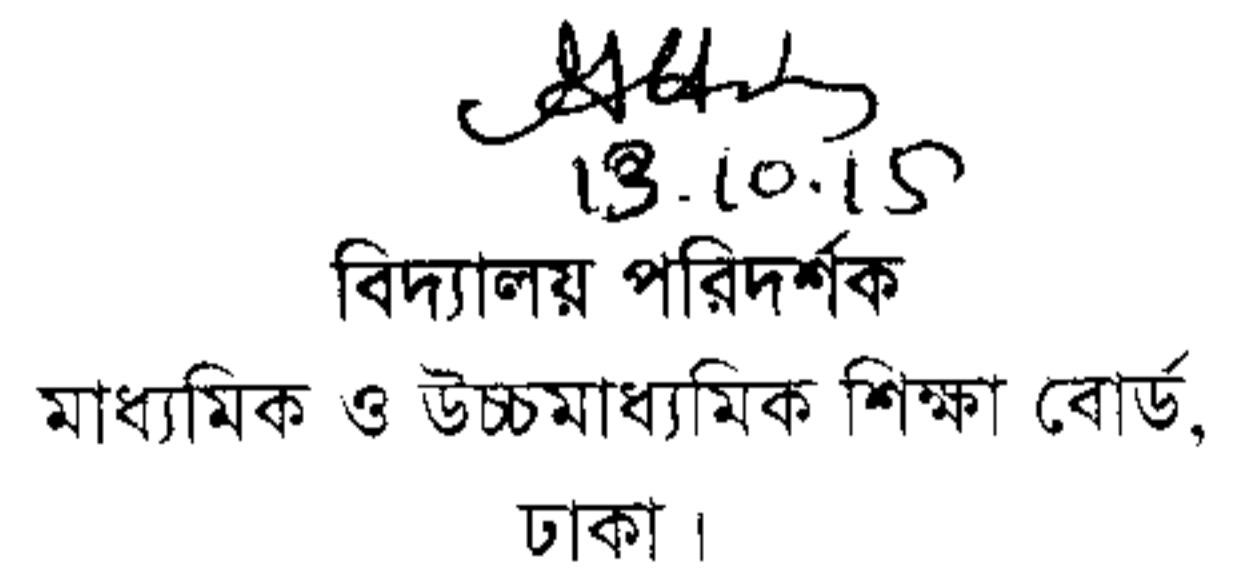 13.10.15
বিদ্যালয় পরিদর্শক
মাধ্যমিক ও উচ্চমাধ্যমিক শিক্ষা বোর্ড,
ঢাকা।